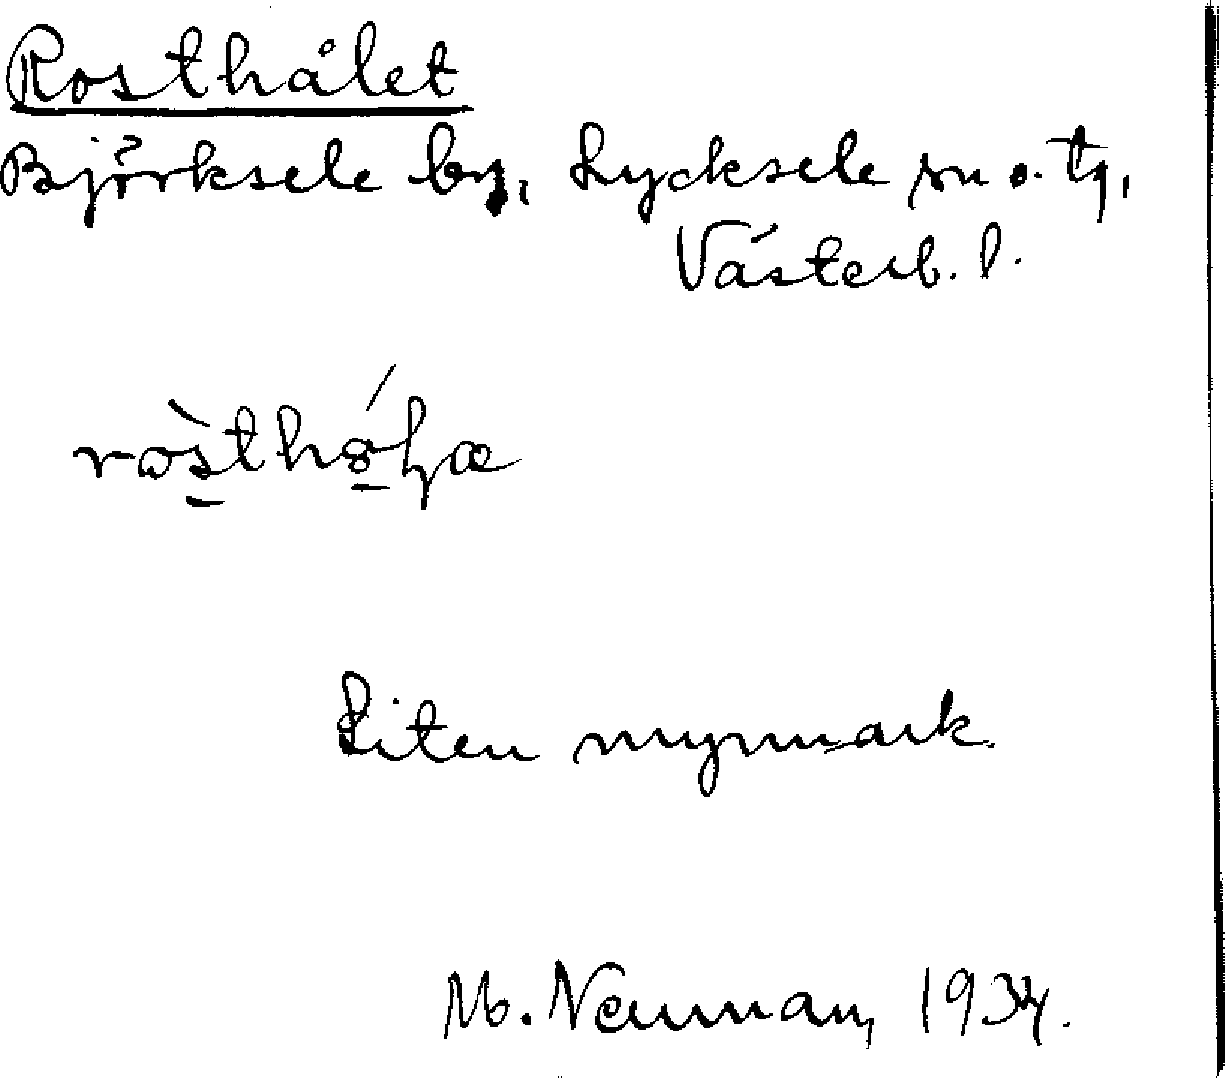 Rosthålet
Björksele by, Lycksele sn o. tg,
Västerb. l.
Liten myrmark
M. Neuman, 1934.